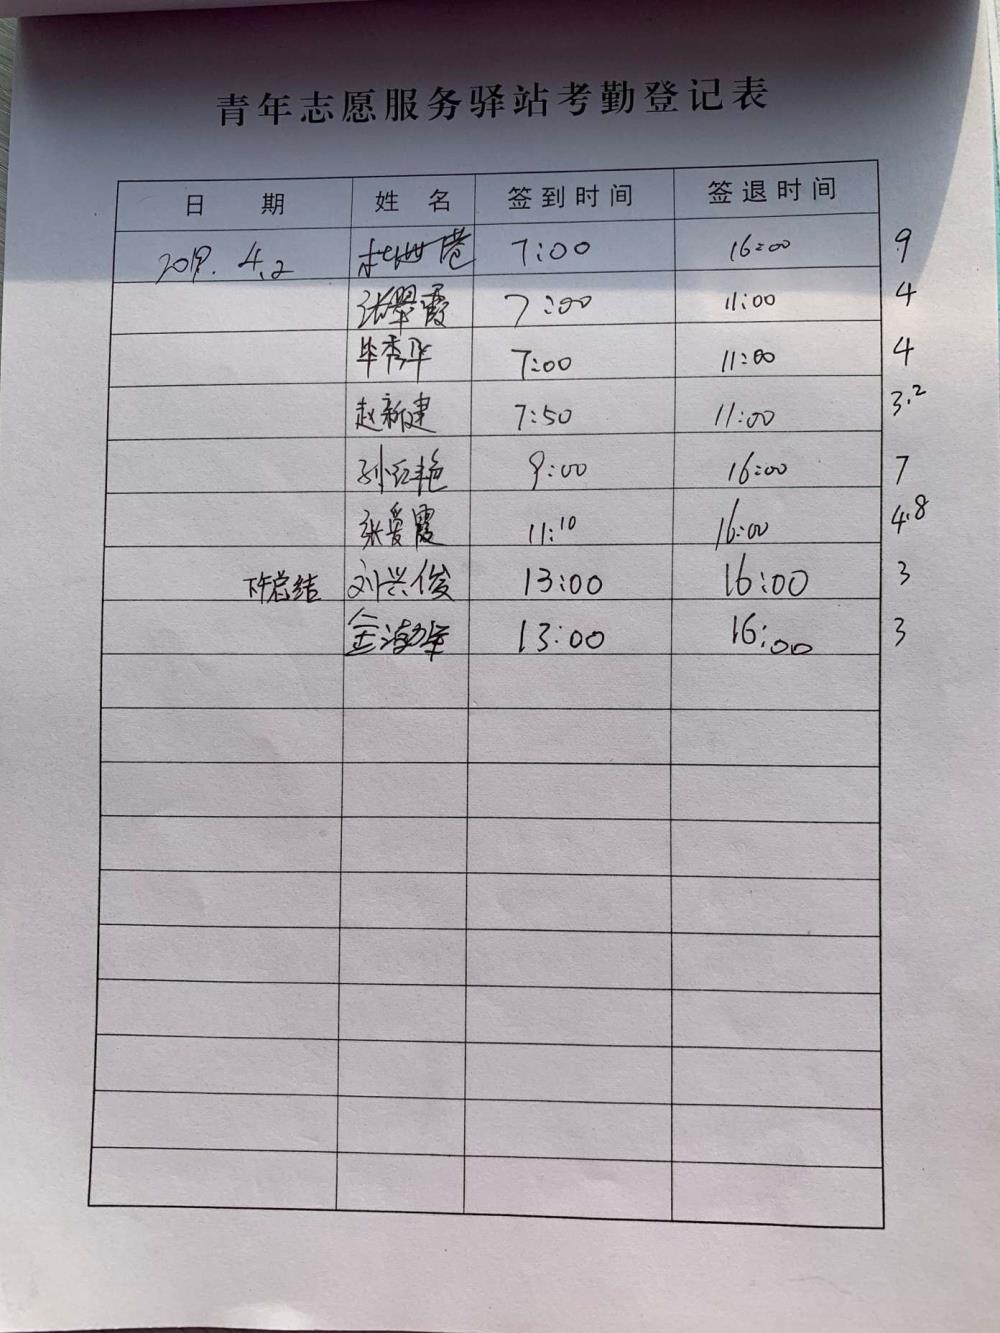 青年志愿服务驿站考勤登记表
日 期 姓 名 签到时间 签退时间
2019. 4.2 杜世港 7:00 16:00 9
张翠霞 7:00 11:00 4
毕秀华 7:00 11:00 4
赵新建 7:50 11:00 3.2
孙红艳 9:00 16:00 7
张爱霞 11:10 16:00 4.8
下午总结 刘兴俊 13:00 16:00 3
金 13:00 16:00 3